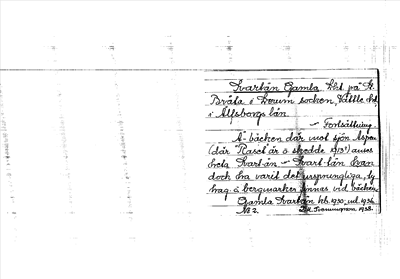 Svartån Gamla, hht på St.
Bråta i Lerum socken, Vättle hd
i Älfsborgs län.
— Fortsättning.
A-bäcken där mot sjön Aspen
(där "Rasct" är o skedde 1913) anses
heta Svart-ån — Svart-lån kan
doch ha varit det ursprungliga, ty
hag o bergmarker finnas vid bäcken.
Gamla Svartån hb. 1930, ud. 1936
No 2.
1938.